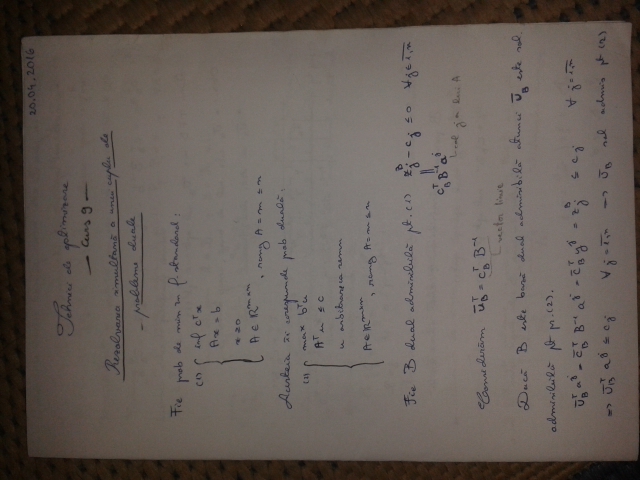 20.04.2016
Tehnici de optimizare
— Curs 9 —
Rezolvarea simultană a unui cuplu de
- probleme duale
Fie prob de min în f. standard:
(1) { inf cᵀx
Ax = b
x ≥ 0
A ∈ ℝᵐˣⁿ, rang A = m ≤ n
Acesteia îi corespunde prob duală:
(2) { max bᵀu
Aᵀu ≤ c
u arbitrar ca semn
A ∈ ℝᵐˣⁿ, rang A = m ≤ n
Fie B dual admisibilă pt. (1) zⱼᴮ - cⱼ ≤ 0 ∀ j ∈ 1,n
||
c_Bᵀ B⁻¹ aʲ
col j a lui A
Considerăm ū_Bᵀ = c_Bᵀ B⁻¹
vector linie
Dacă B este bază dual admisibilă atunci ū_B este sol.
admisibilă pt pr. (2).
ū_Bᵀ aʲ = c_Bᵀ B⁻¹ aʲ = c_Bᵀ yʲ = zⱼᴮ ≤ cⱼ ∀ j = 1,n
⇒ ū_Bᵀ aʲ ≤ cⱼ ∀ j = 1,n ⇒ ū_B sol admis pt (2)